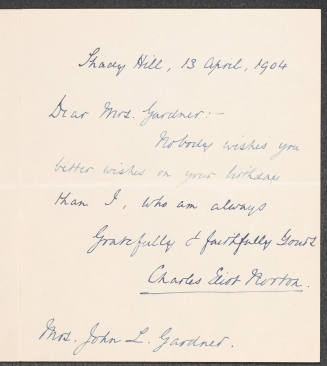 Shady Hill, 13 April, 1904
Dear Mrs. Gardner:-
Nobody wishes you
better wishes on your birthday
than I, who am always
Gratefully & faithfully Yours
Charles Eliot Norton.
Mrs. John L. Gardner.